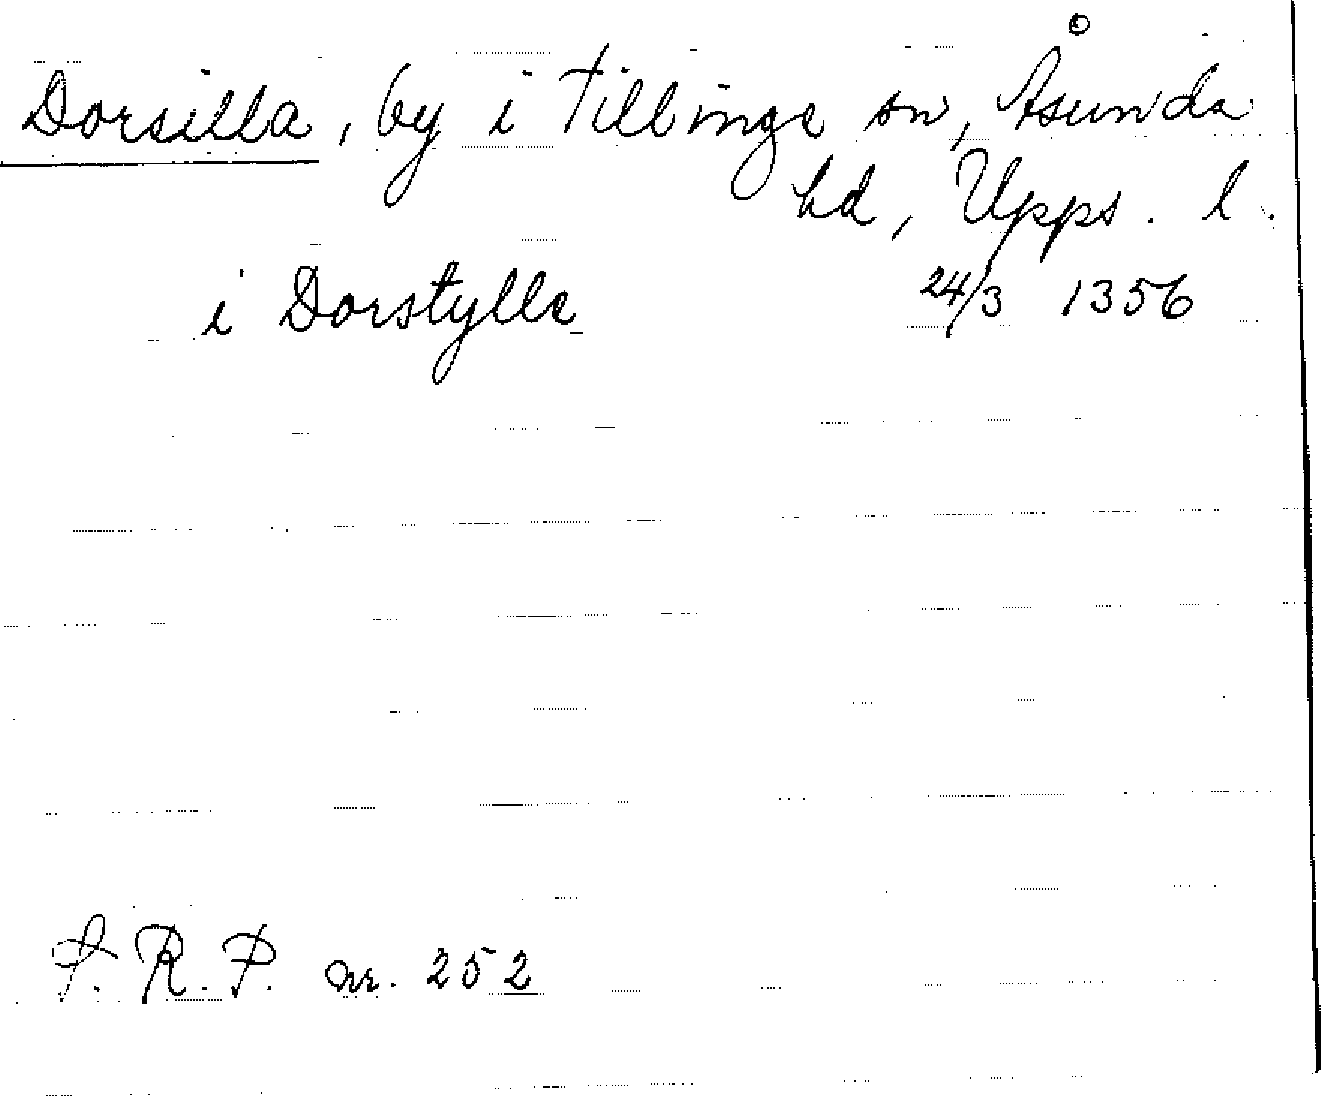 Dorsilla, by i Tillinge sn, Åsunda
hd, Upps. l.
i Dorstylla 24/3 1356
S. R. P. nr. 252